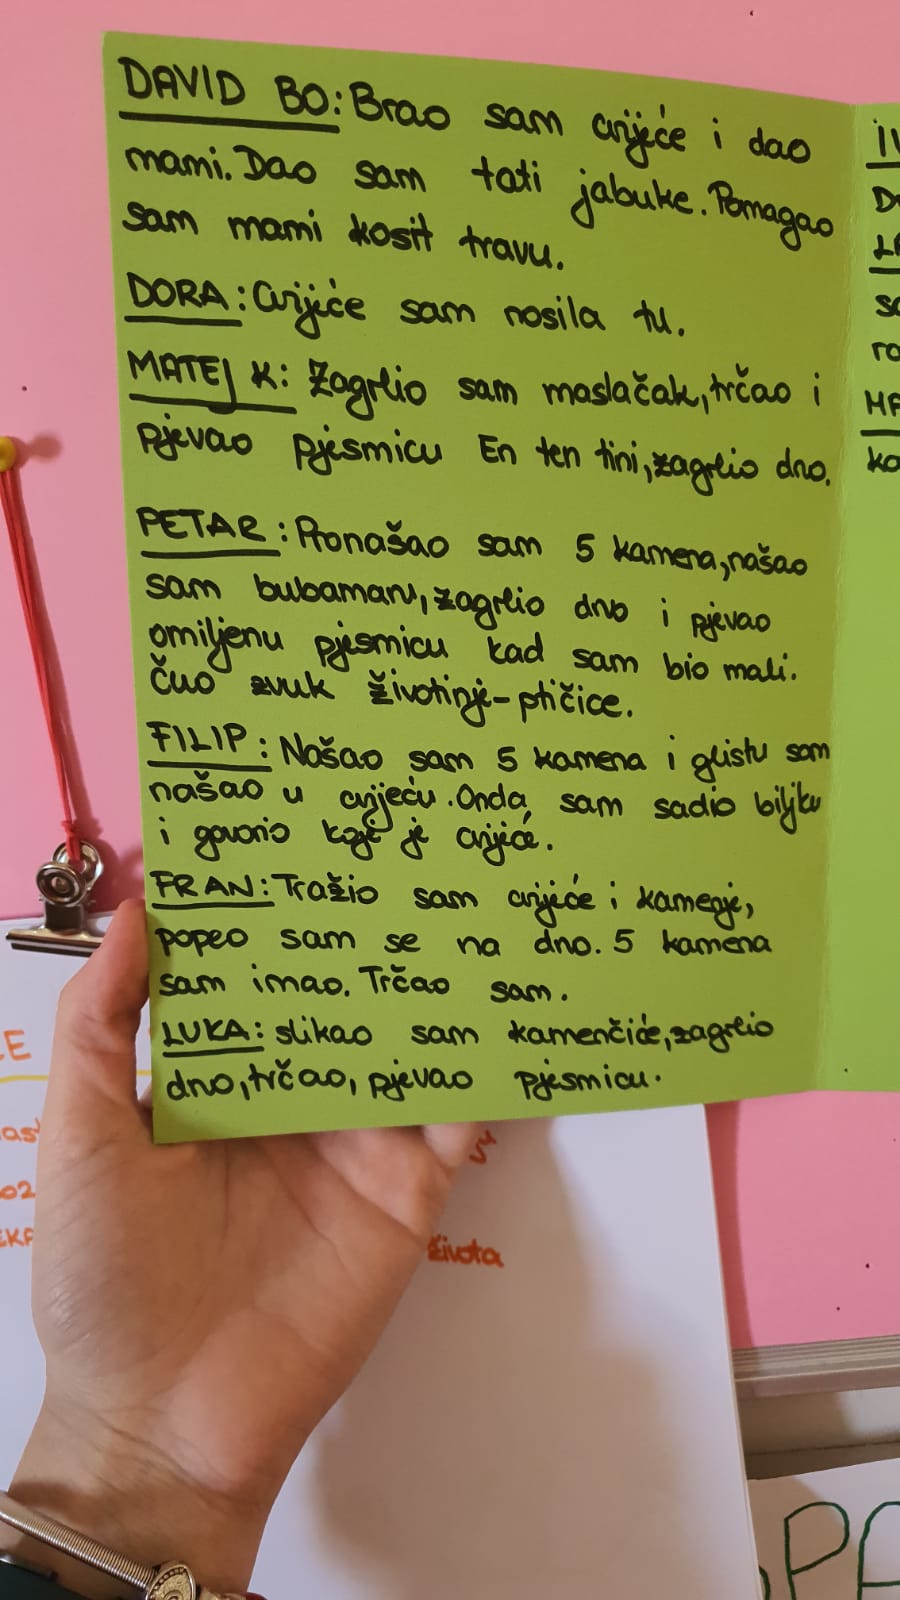 DAVID BO: Brao sam cvijeće i dao
mami. Dao sam tati jabuke. Pomagao
sam mami kosit travu.
DORA: Cvijeće sam nosila tu.
MATEJ K: Zagrlio sam maslačak, trčao i
pjevao pjesmicu En ten tini, zagrlio drvo.
PETAR: Pronašao sam 5 kamena, našao
sam bubamaru, zagrlio drvo i pjevao
omiljenu pjesmicu kad sam bio mali.
Čuo zvuk životinje-ptičice.
FILIP: Našao sam 5 kamena i glistu sam
našao u cvijeću. Onda sam sadio biljku
i govorio koje je cvijeće.
FRAN: Tražio sam cvijeće i kamenje,
popeo sam se na drvo. 5 kamena
sam imao. Trčao sam.
LUKA: slikao sam kamenčiće, zagrlio
drvo, trčao, pjevao pjesmicu.
života